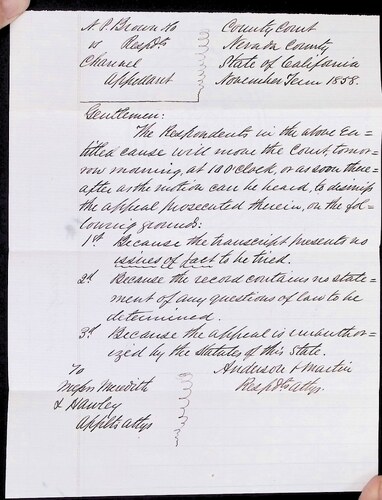 N. P. Brown &Co
vs Respdts
Channel
Appellant
County Court
Nevada County
State of California
November Term 1858.
Gentlemen:
The Respondents in the above En-
titled cause will move the Court, tomor-
row morning, at 10 o'clock, or as soon there-
after as the motion can be heard, to dismiss
the appeal prosecuted therein, on the fol-
lowing grounds:
1st Because the transcript presents no
issues of fact to be tried.
2d Because the record contains no state-
ment of any questions of law to be
determined.
3d Because the appeal is unauthor-
ized by the statutes of this State.
To
Messrs Meredith
& Hawley
Applts attys
Anderson & Martin
Respdts attys.